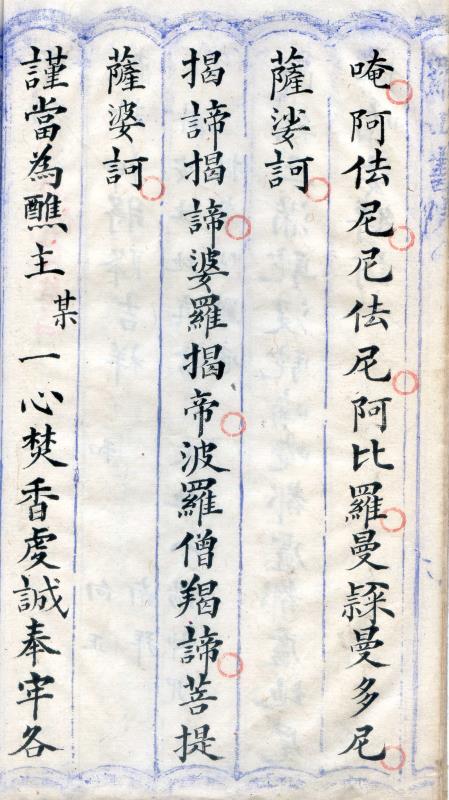 唵阿佉尼尼佉尼阿比羅曼𨽻曼多尼
薩娑訶
揭諦揭諦婆羅揭帝波羅僧羯諦菩提
薩婆訶
謹當為醮主某一心焚香虔誠奉牢各